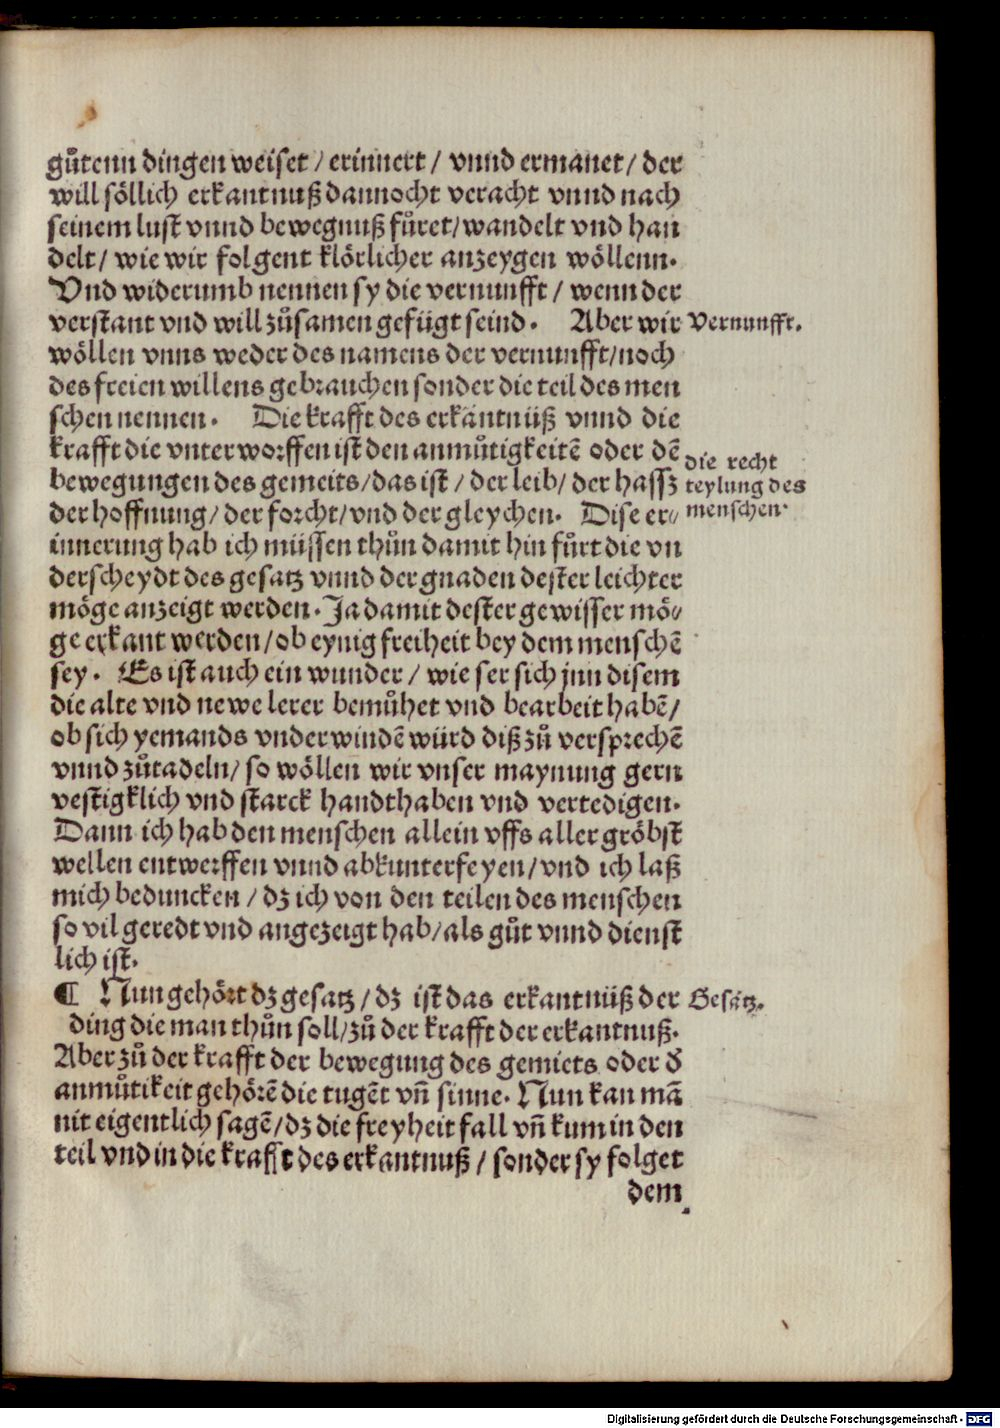 gůtenn dingen weiset / erinnert / vnnd ermanet / der
will söllich erkantnuß dannocht veracht vnnd nach
seinem lust vnnd bewegnuß fůret / wandelt vnd han
delt / wie wir folgent klörlicher anzeygen wöllenn.
Vnd widerumb nennen sy die vernunfft / wenn der
verstant vnd will zůsamen gefügt seind. Aber wir
Vernunfft.
wöllen vnns weder des namens der vernunfft / noch
des freien willens gebrauchen sonder die teil des men
schen nennen. Die krafft des erkäntnüß vnnd die
krafft die vnterworffen ist den anmůtigkeitẽ oder dẽ
bewegungen des gemeits / das ist / der leib / der hassz
der hoffnung / der forcht / vnd der gleychen. Dise er⸗
die recht
teylung des
menschen.
innerung hab ich müssen thůn damit hin fůrt die vn
derscheydt des gesatz vnnd der gnaden dester leichter
möge anzeigt werden. Ja damit dester gewisser mö⸗
ge erkant werden / ob eynig freiheit bey dem menschẽ
sey. Es ist auch ein wunder / wie ser sich jnn disem
die alte vnd newe lerer bemůhet vnd bearbeit habẽ /
ob sich yemands vnderwindẽ würd diß zů versprechẽ
vnnd zůtadeln / so wöllen wir vnser maynung gern
vestigklich vnd starck handthaben vnd vertedigen.
Dann ich hab den menschen allein vffs aller gröbst
wellen entwerffen vnnd abkunterfeyen / vnd ich laß
mich beduncken / dz ich von den teilen des menschen
so vil geredt vnd angezeigt hab / als gůt vnnd dienst
lich ist.
¶ Nun gehört dz gesatz / dz ist das erkantnüß der
Gesätz.
ding die man thůn soll / zů der krafft der erkantnuß.
Aber zů der krafft der bewegung des gemiets oder ď
anmůtikeit gehörẽ die tugẽt vñ sinne. Nun kan mã
nit eigentlich sagẽ / dz die freyheit fall vñ kum in den
teil vnd in die krafft des erkantnuß / sonder sy folget
dem
Digitalisierung gefördert durch die Deutsche Forschungsgemeinschaft - DFG